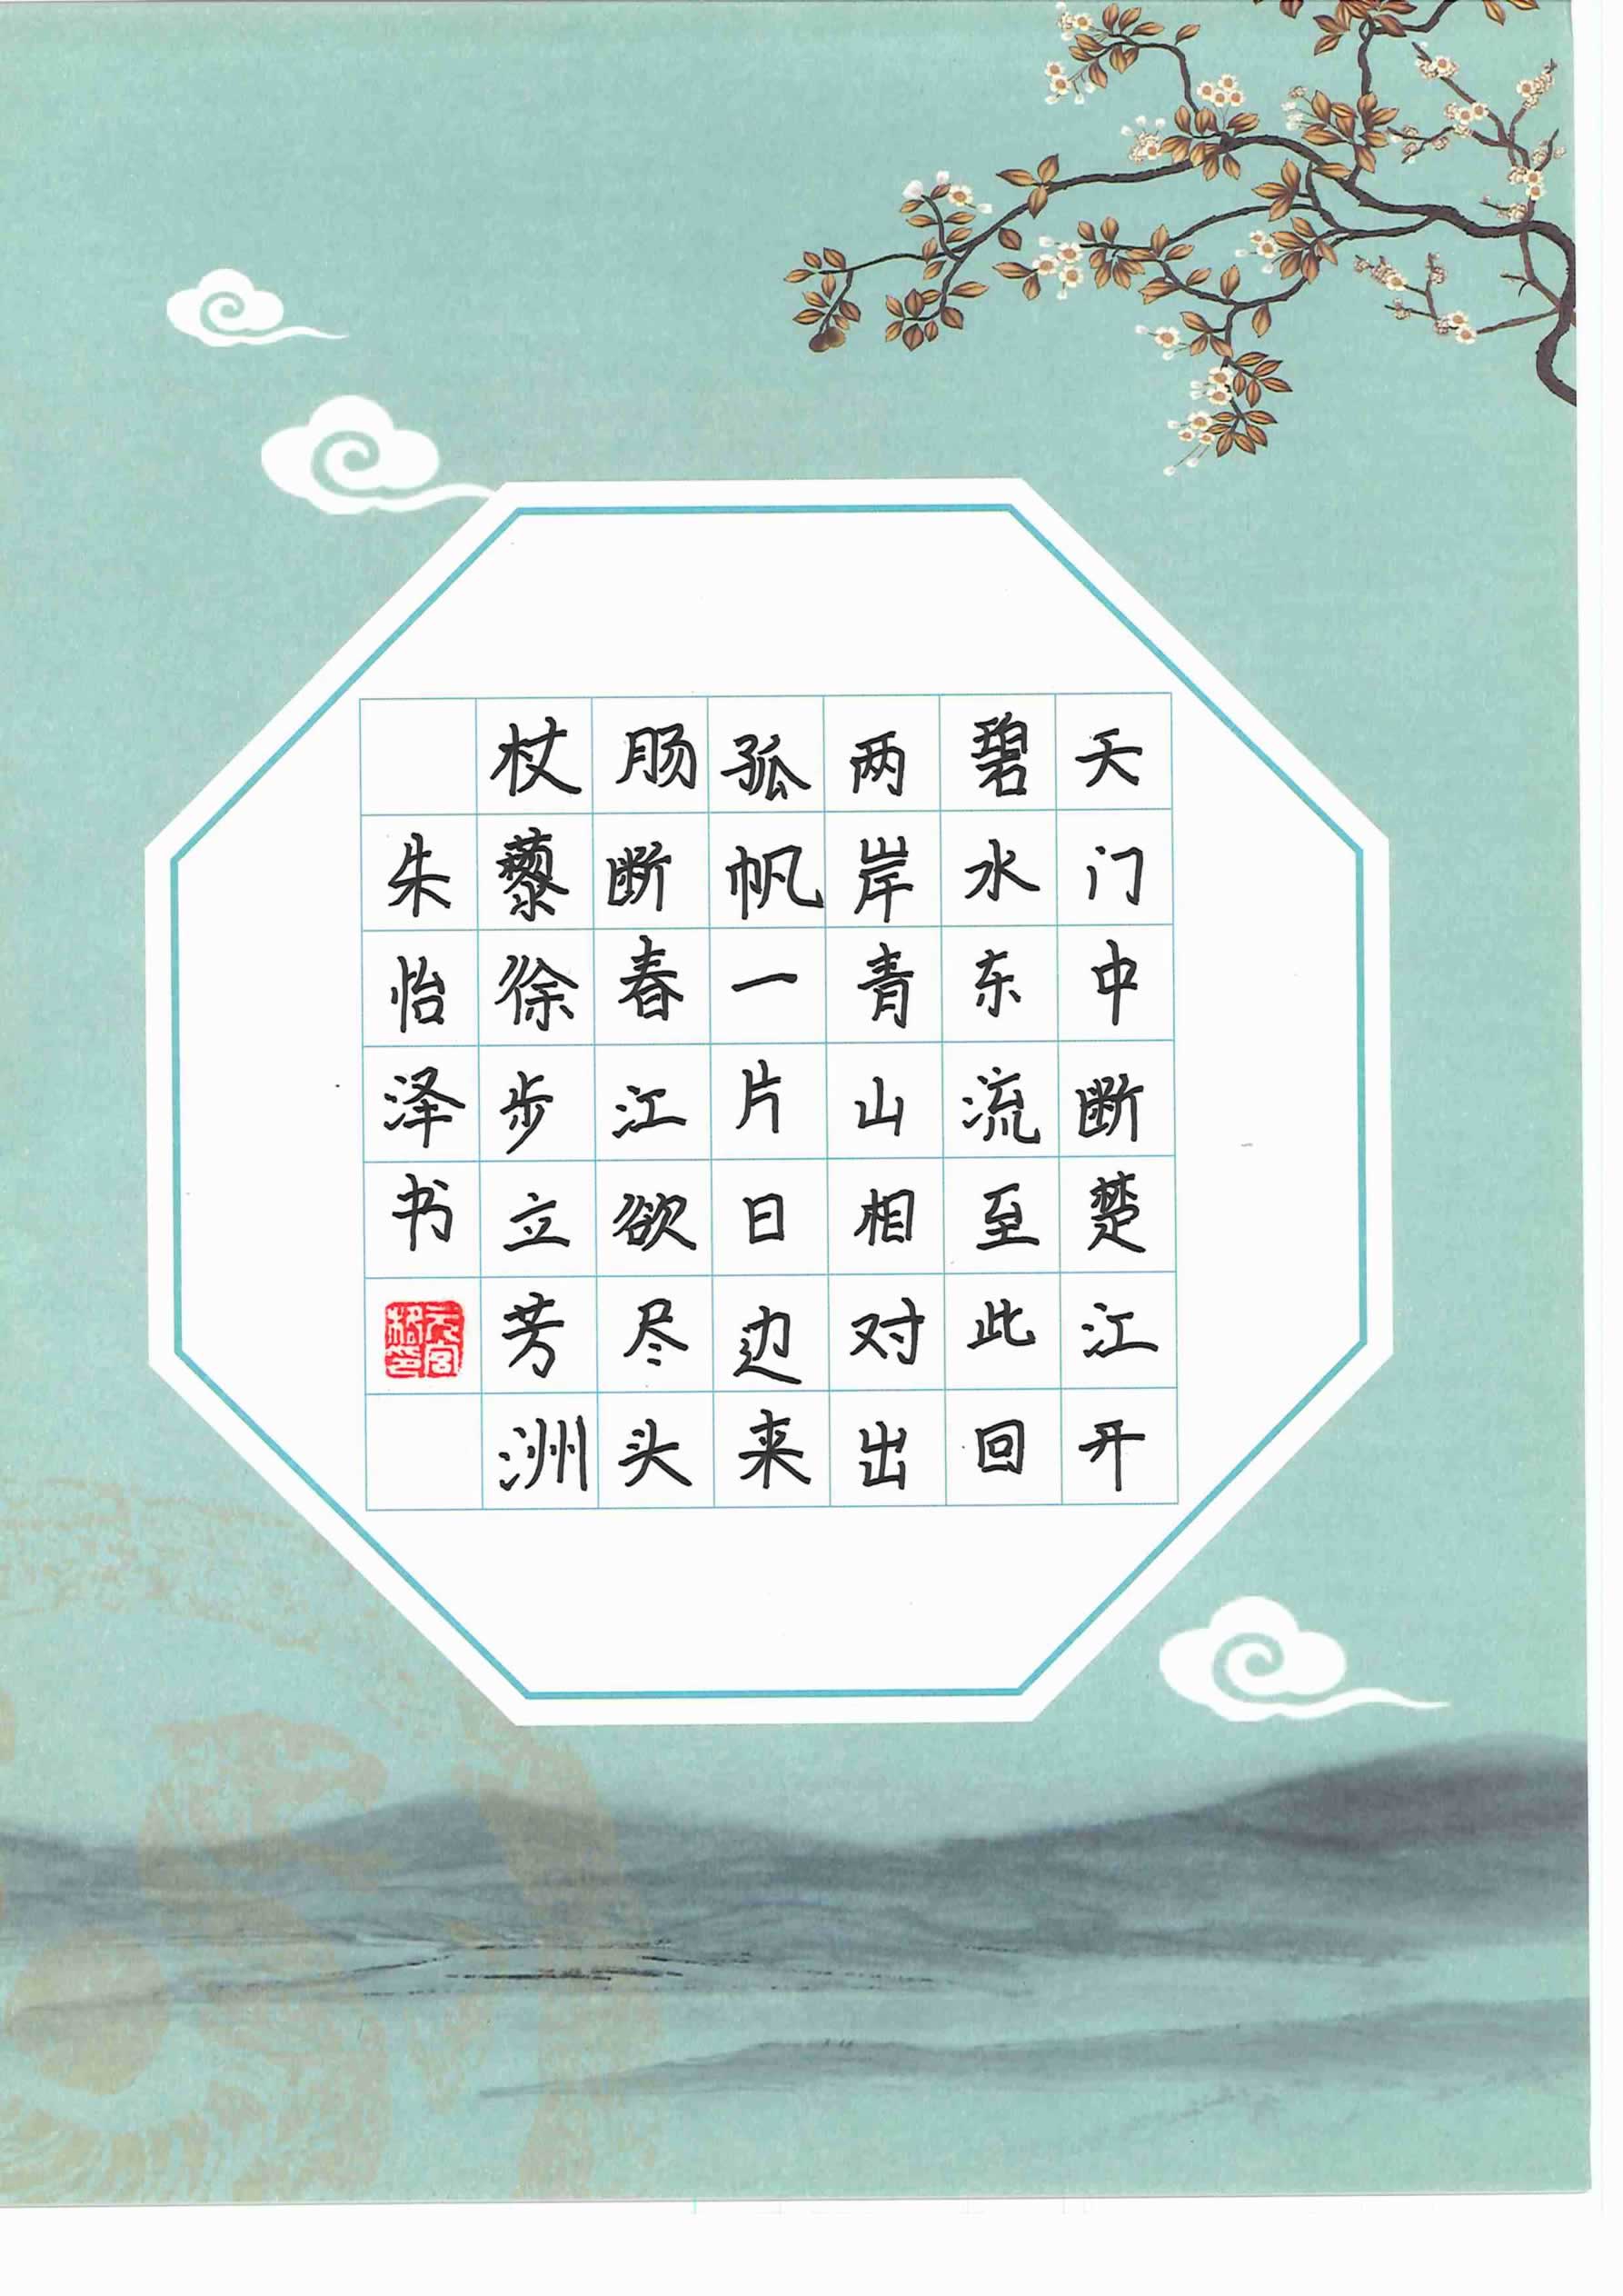 天门中断楚江开
碧水东流至此回
两岸青山相对出
孤帆一片日边来
肠断春江欲尽头
杖藜徐步立芳洲
朱怡泽书